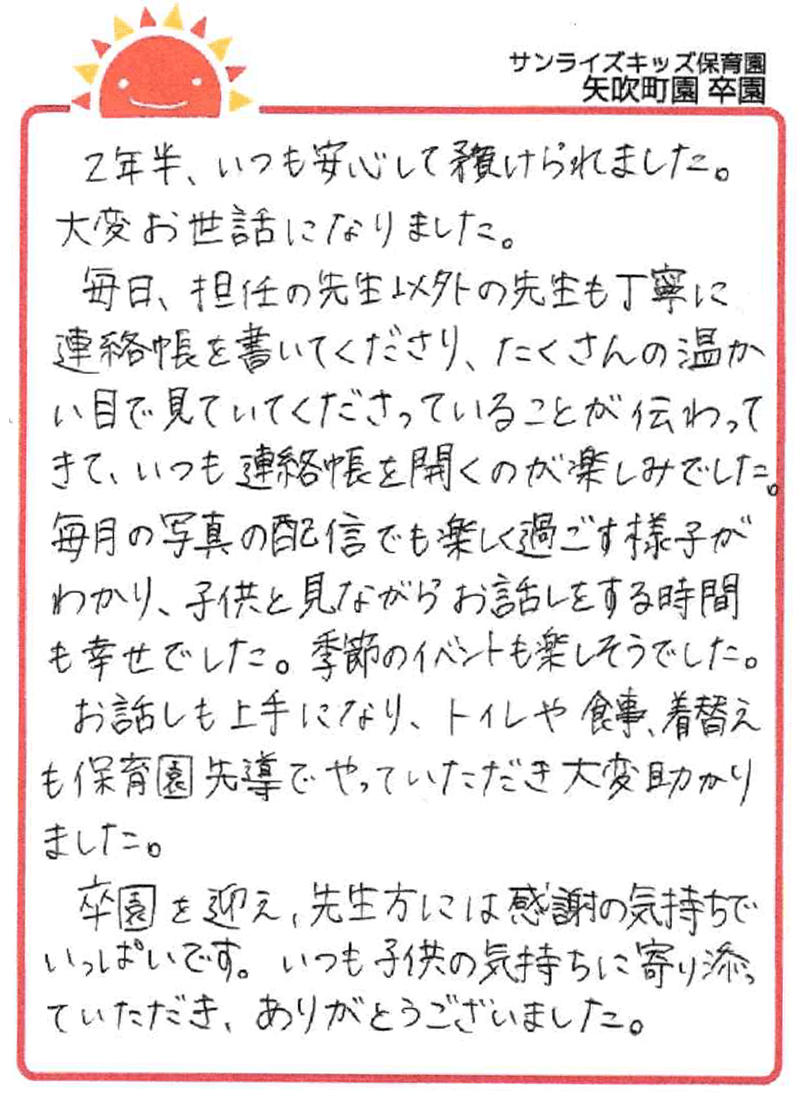 サンライズキッズ保育園
矢吹町園 卒園
2年半、いつも安心して預けられました。
大変お世話になりました。
毎日、担任の先生以外の先生も丁寧に
連絡帳を書いてくださり、たくさんの温か
い目で見ていてくださっていることが伝わって
きて、いつも連絡帳を開くのが楽しみでした。
毎月の写真の配信でも楽しく過ごす様子が
わかり、子供と見ながらお話しをする時間
も幸せでした。季節のイベントも楽しそうでした。
お話しも上手になり、トイレや食事、着替え
も保育園先導でやっていただき大変助かり
ました。
卒園を迎え、先生方には感謝の気持ちで
いっぱいです。いつも子供の気持ちに寄り添っ
ていただき、ありがとうございました。